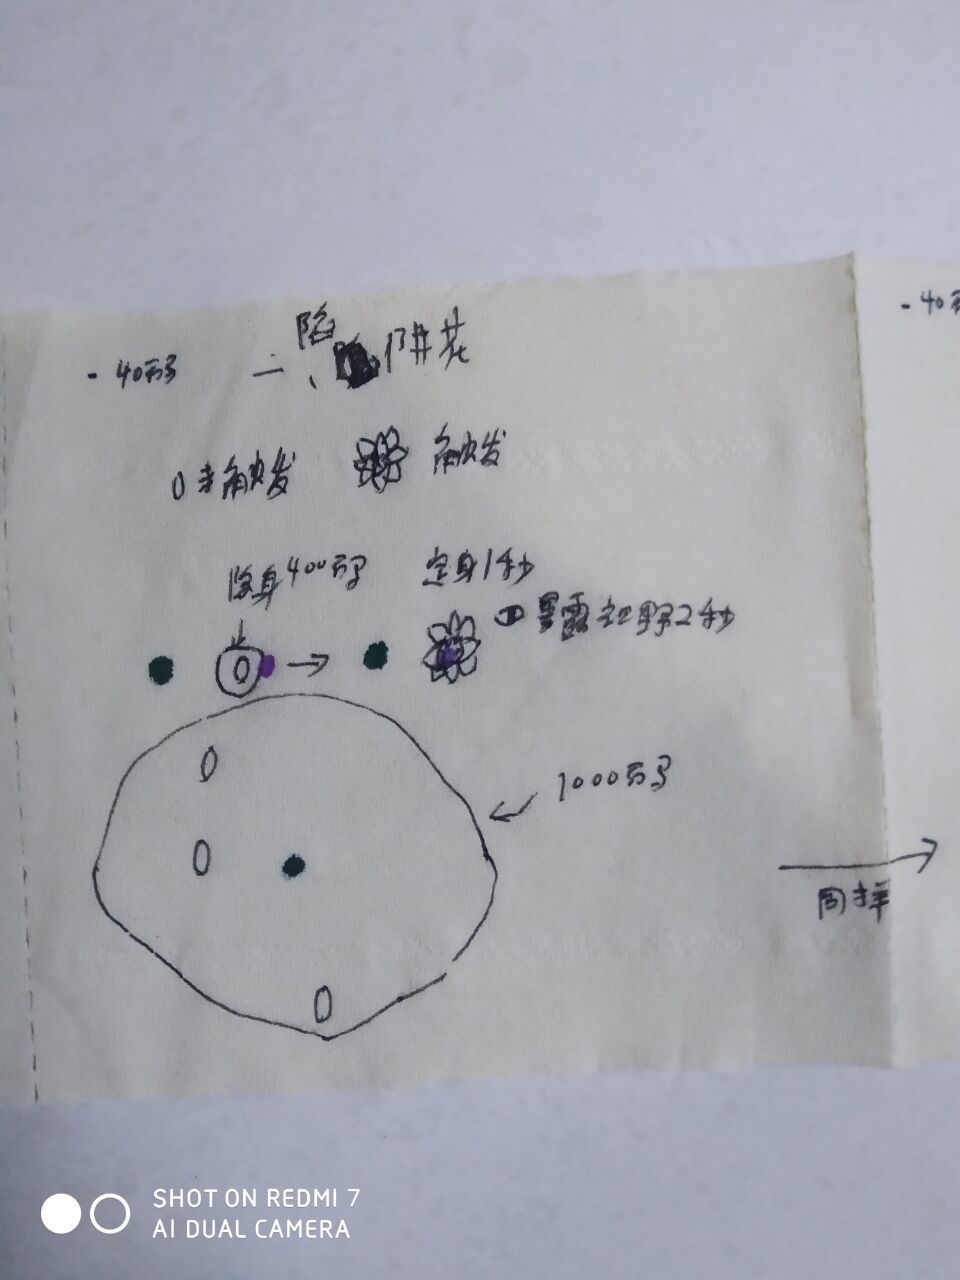 - 40码
二、陷阱花
0未触发 触发
隐身400码 定身1秒
暴露视野2秒
0
0
1000码
0
同样
- 40码
SHOT ON REDMI 7
AI DUAL CAMERA